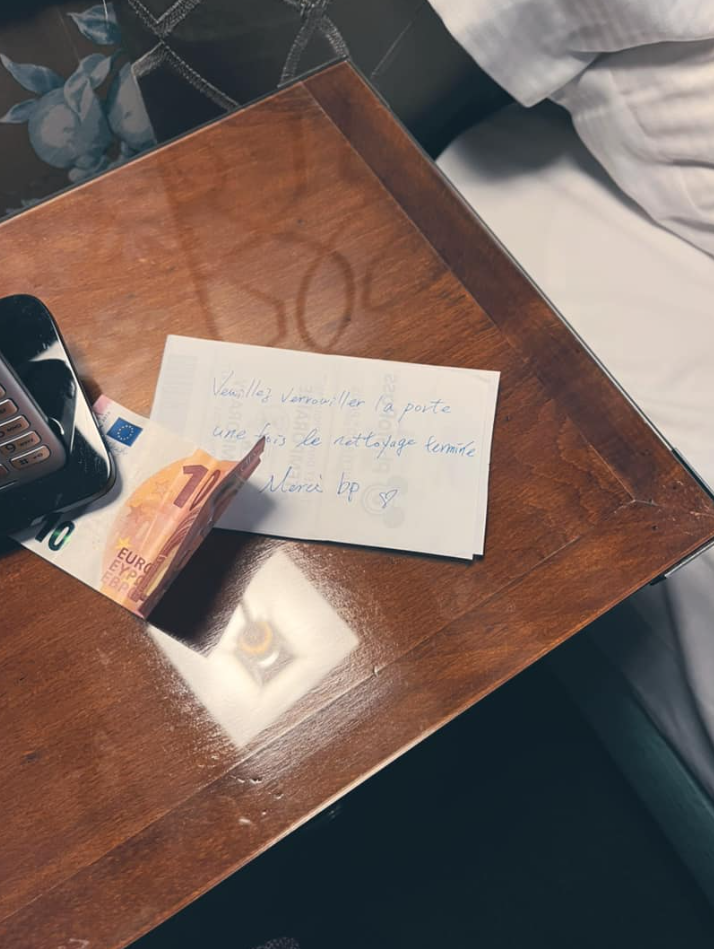 10
10
EURO
ΕΥΡΩ
Veuillez verrouiller la porte
une fois le nettoyage terminé
Merci bp